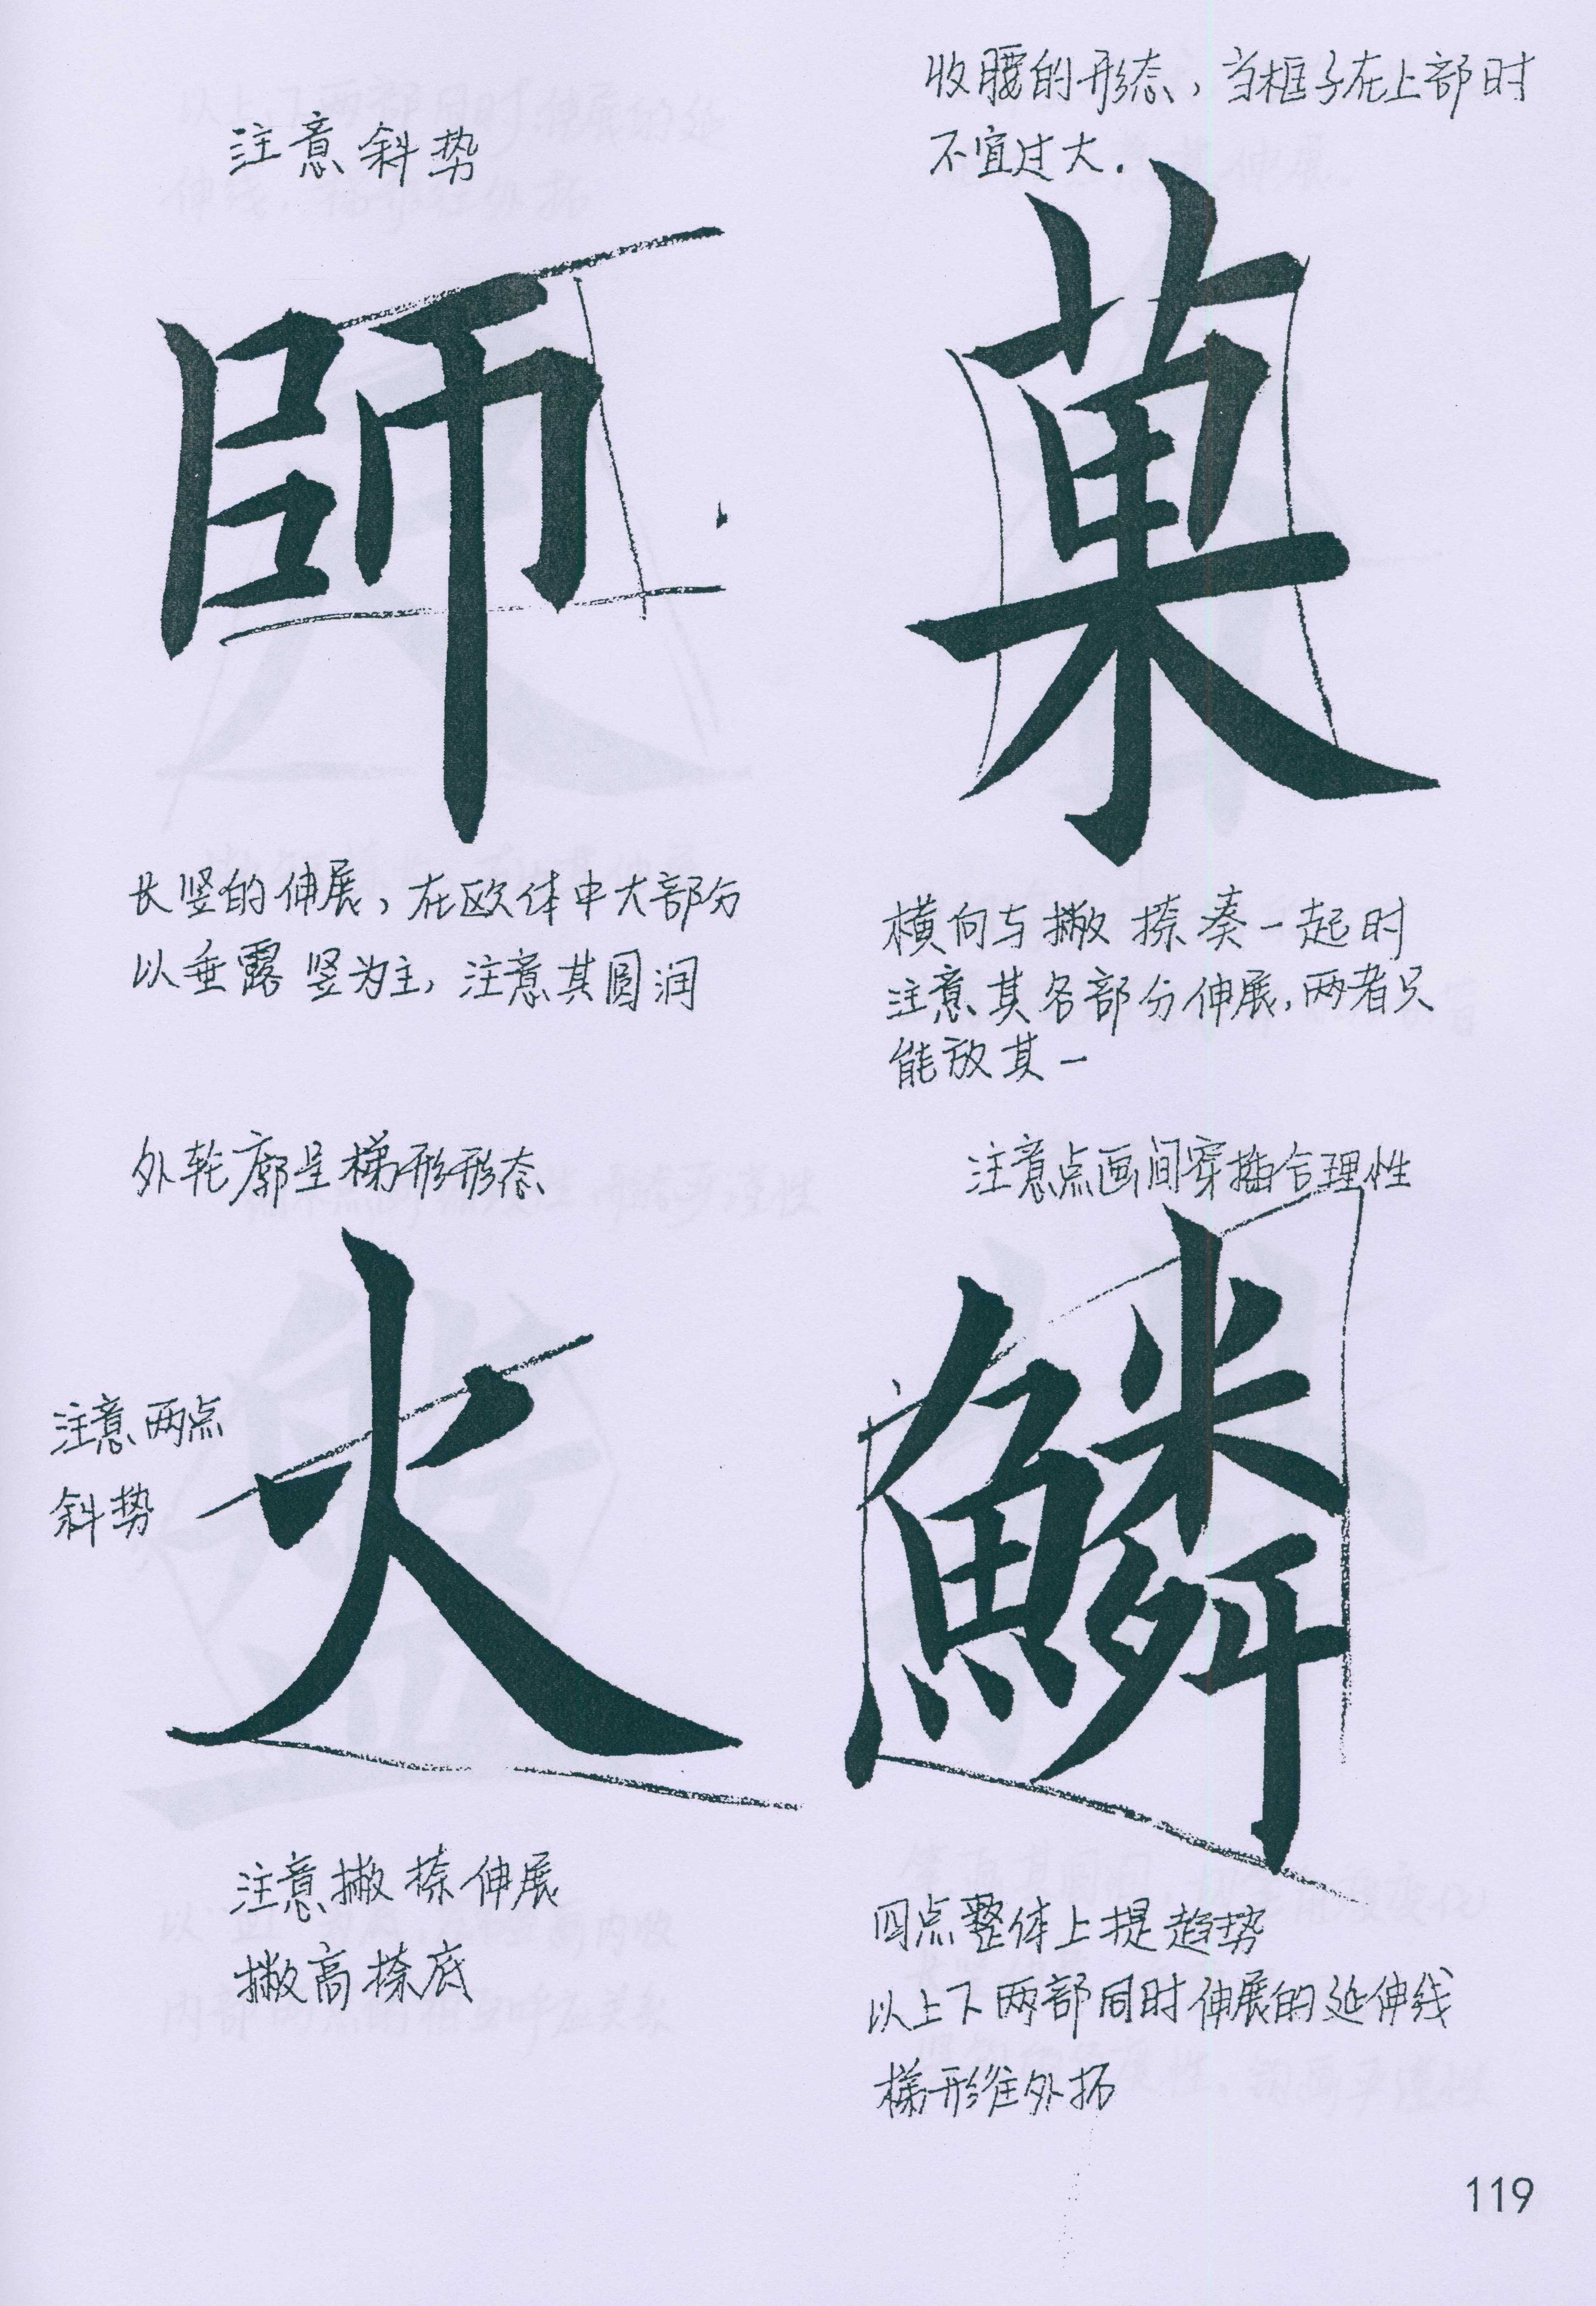 注意斜势
師
长竖的伸展，在欧体中大部分
以垂露竖为主，注意其圆润
收腰的形态，当框子在上部时
不宜过大.
菓
横向与撇捺奏一起时
注意其各部分伸展，两者只
能放其一
外轮廓呈梯形形态
注意两点
斜势
火
注意撇捺伸展
撇高捺底
注意点画间穿插合理性
鳞
四点整体上提趋势
以上下两部同时伸展的延伸线
梯形往外拓
119